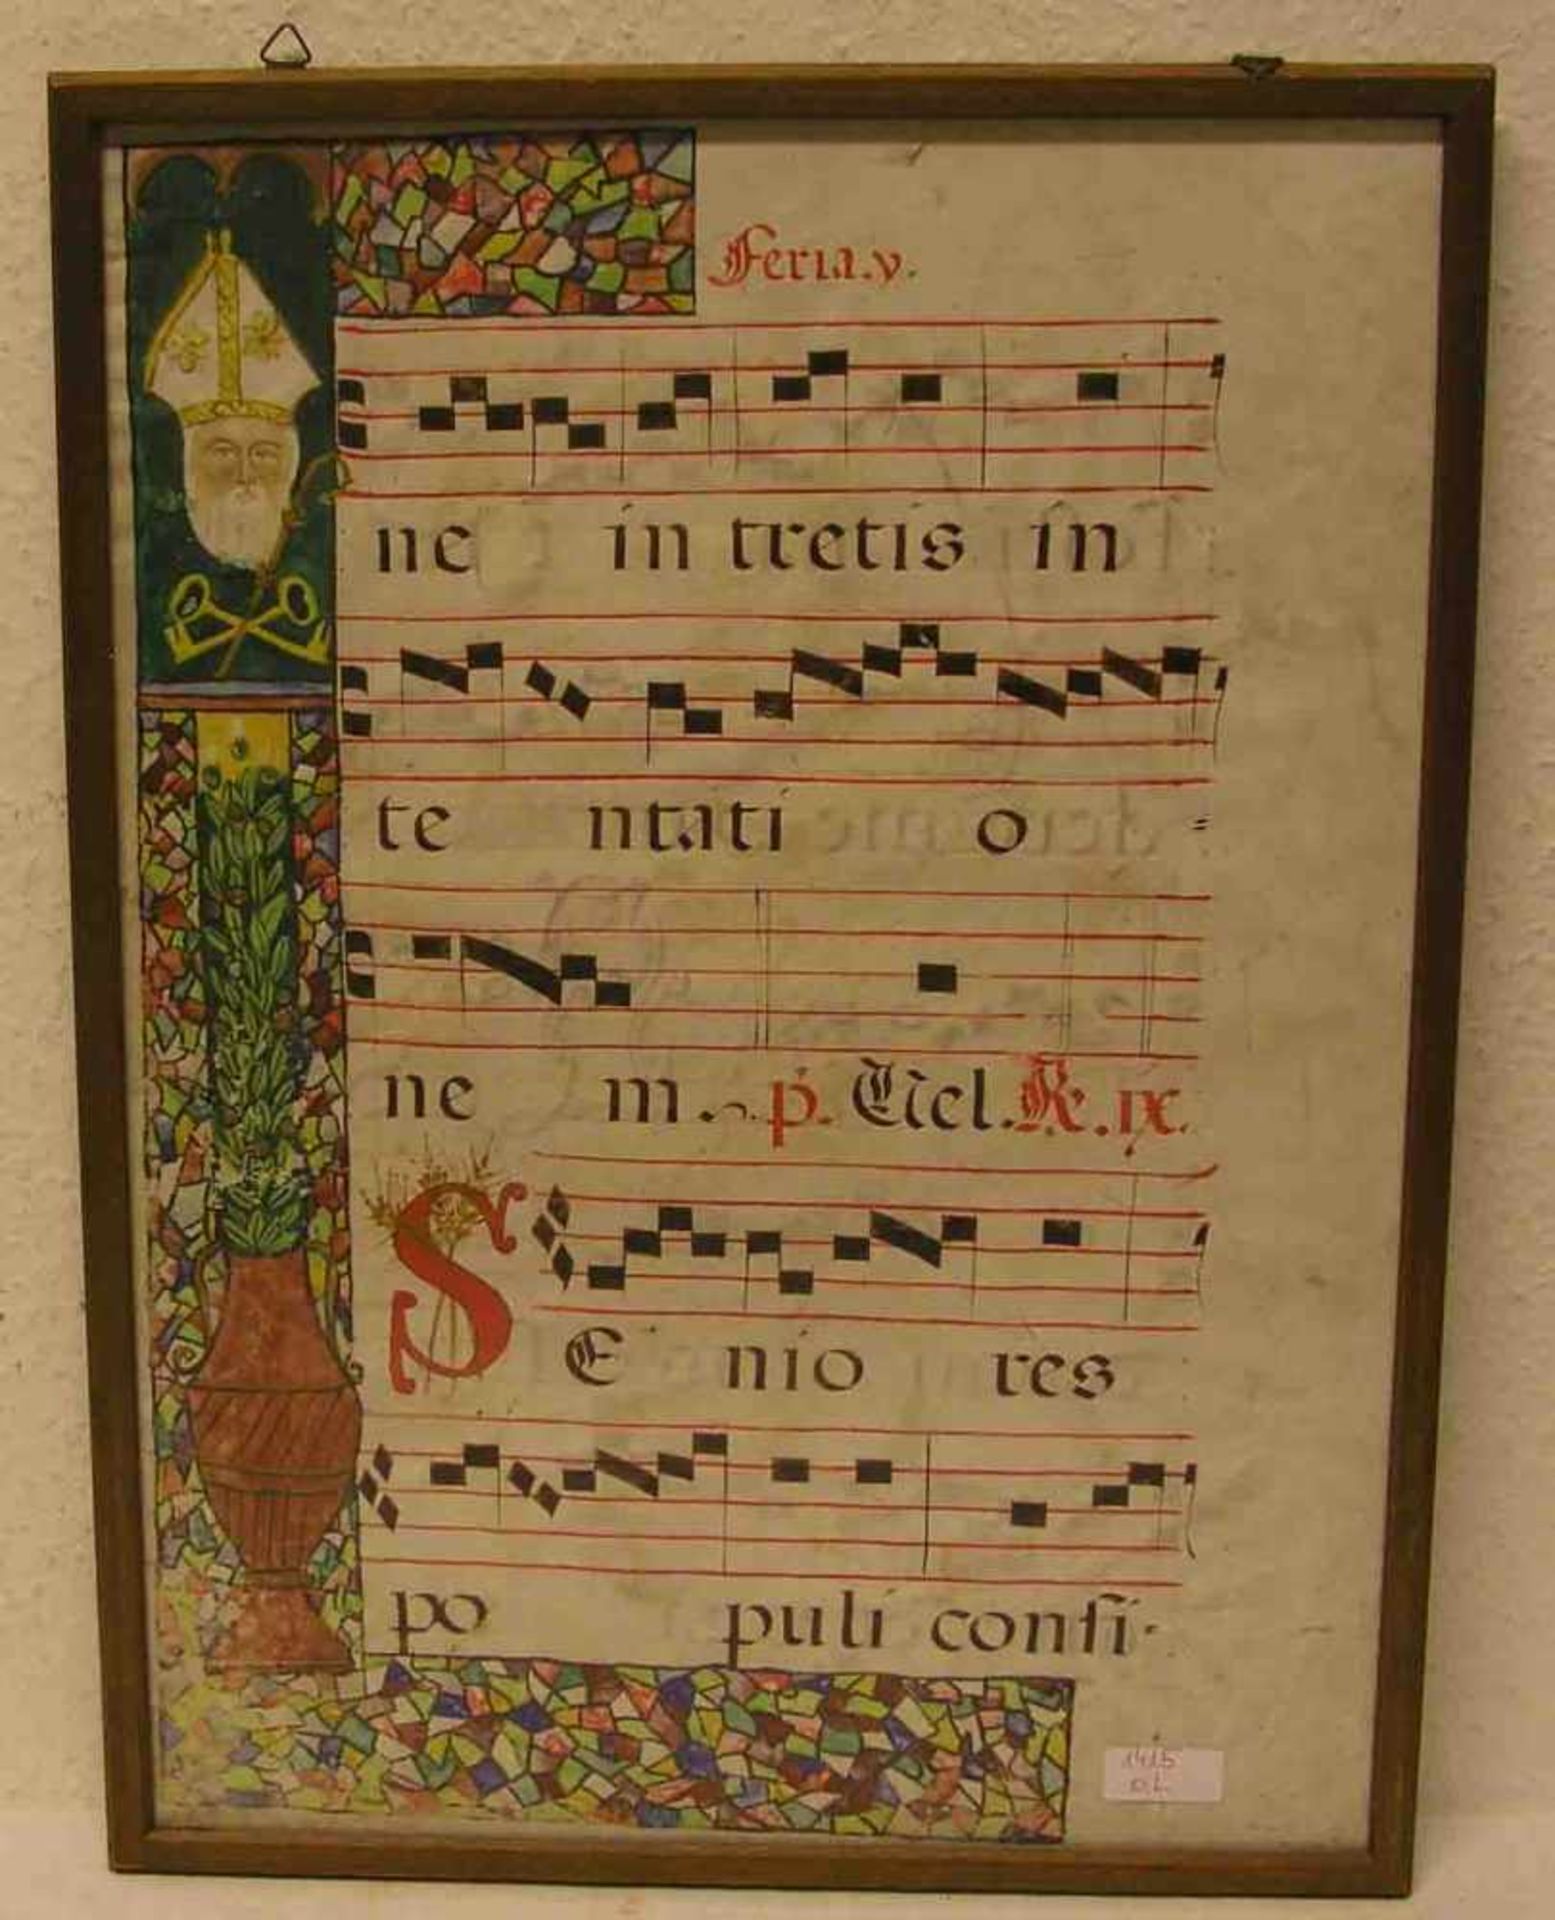 Feria.v.
ne in tretis in
te ntati o =
ne m. p. Uel. R. ix.
S E nio res
po puli consi-
1415
D.L